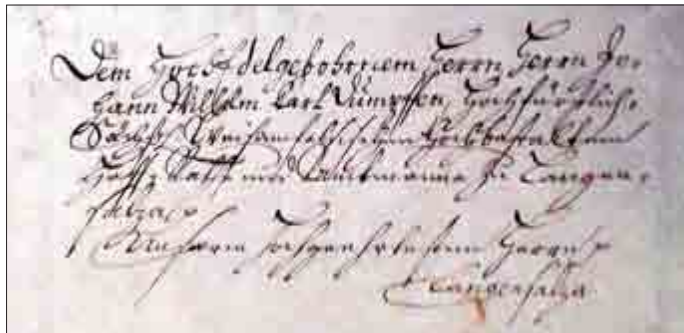 Dem HochEdelgebohrnem Herrn, Herrn Jo-
hann Wilhelm Carl Dümpffen, Hochfürstlich-
Sächs. Weißenfelsischem Hochbestalten
Hoff-Rath und Amtmanne zu Langen-
saltza,
Unserm Hochgeehrtestem Herrn
Langensaltza.